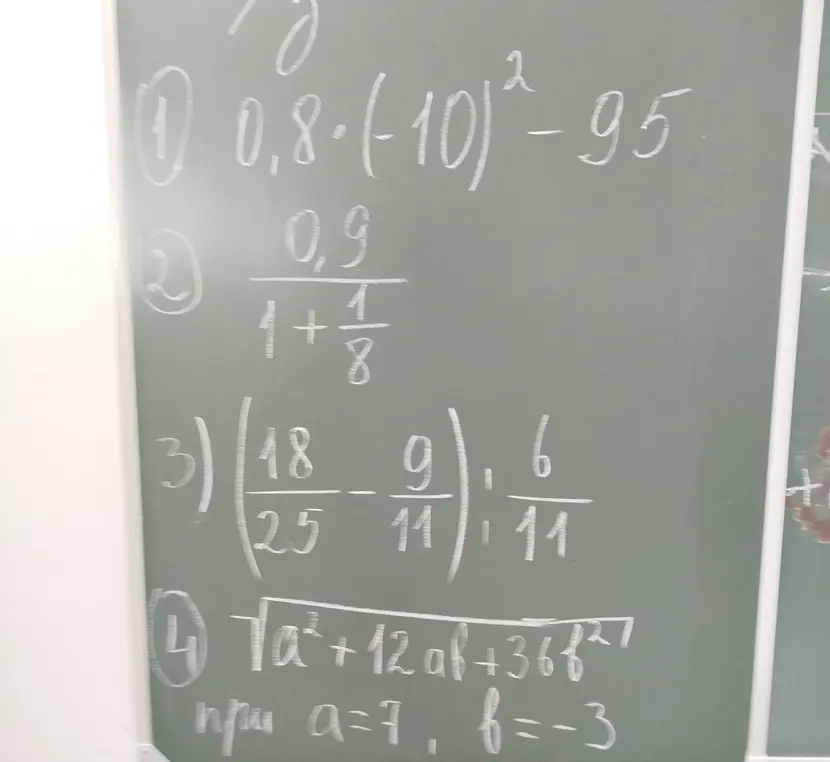 ① 0,8·(-10)² - 95
② 0,9 / (1 + 1/8)
3) (18/25 - 9/11) : 6/11
④ √(a² + 12ab + 36b²)
при a=7, b=-3